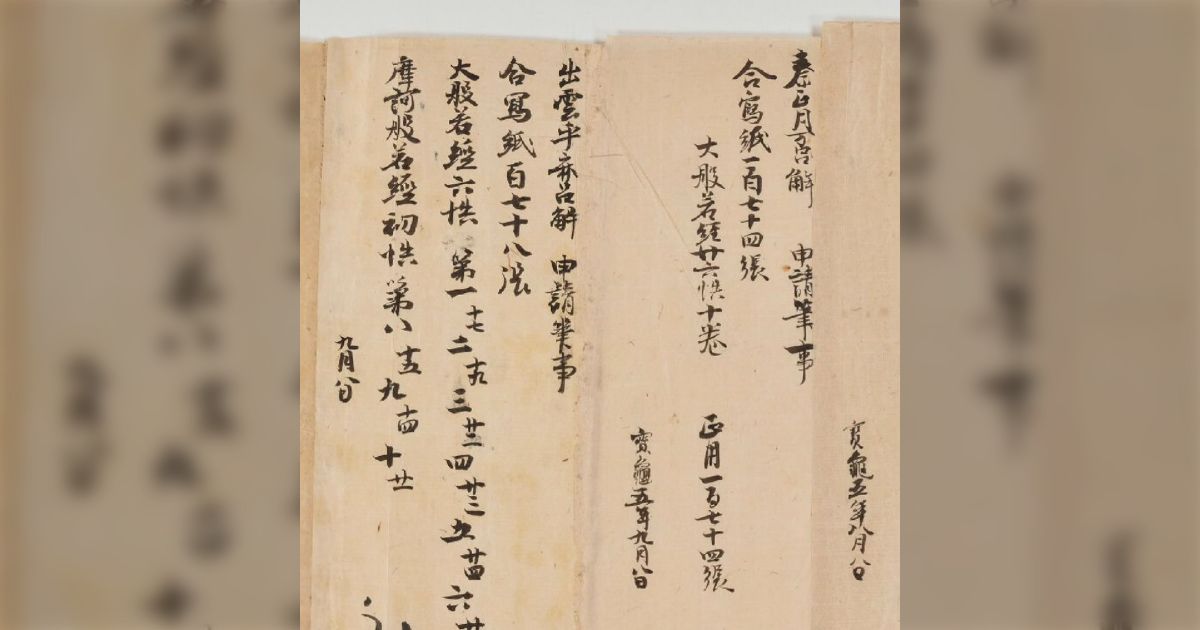 寶龜五年八月八日
秦正月万呂解 申請筆事
合寫紙一百七十四張
大般若經廿六帙十卷 正用一百七十四張
寶龜五年九月八日
出雲乎麻呂解 申請筆事
合寫紙百七十八張
大般若經六帙 第一十七 二十九 三廿二 四廿三 五廿四 六廿
摩訶般若經初帙第八十五 九十四 十廿
九月八日